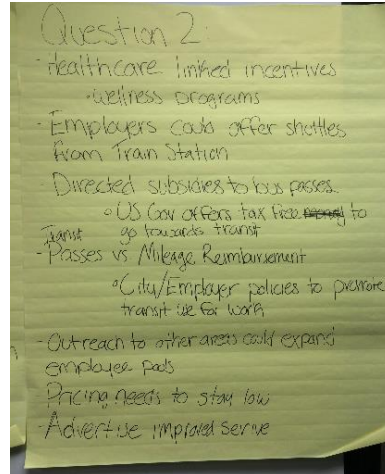 Question 2
- Healthcare linked incentives
- wellness programs
- Employers could offer shuttles
from Train Station
- Directed subsidies to bus passes.
o US Gov offers tax free money to
go towards transit
Transit
- Passes vs Mileage Reimbursement
o City/Employer policies to promote
transit use for work
- Outreach to other areas could expand
employee pools
- Pricing needs to stay low
- Advertise improved serive